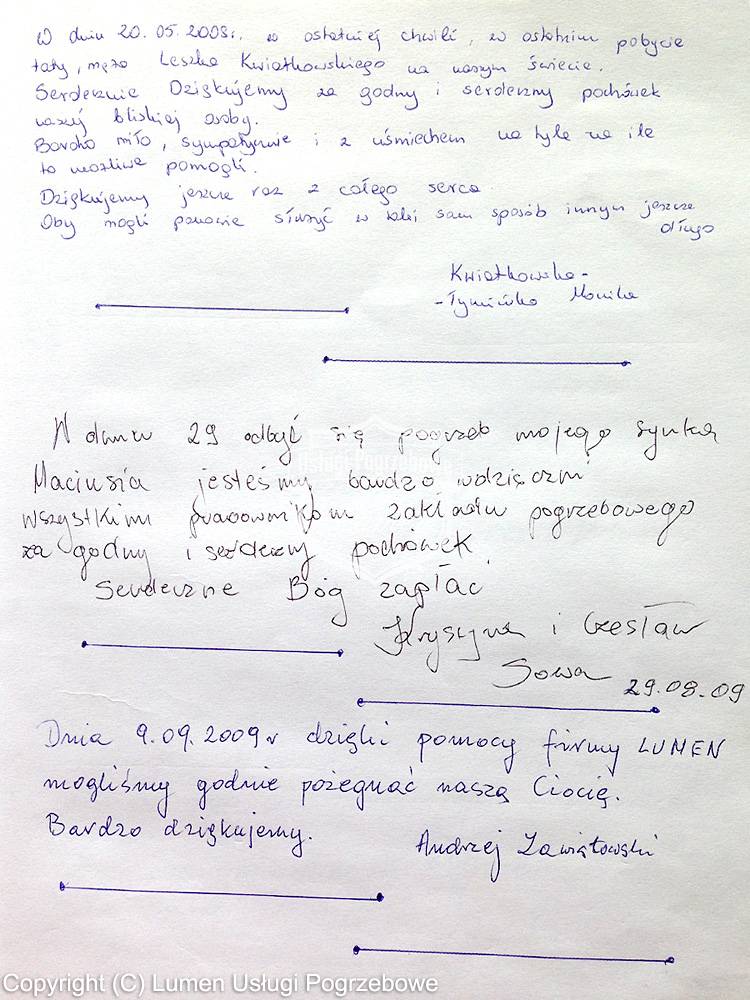 W dniu 20.05.2008r. w ostatniej chwili, w ostatnim pobycie
taty, męża Leszka Kwiatkowskiego na naszym świecie.
Serdecznie Dziękujemy za godny i serdeczny pochówek
naszej bliskiej osoby.
Bardzo miło, sympatycznie i z uśmiechem na tyle na ile
to możliwe pomogli.
Dziękujemy jeszcze raz z całego serca.
Oby mogli ponownie służyć w taki sam sposób innym jeszcze
długo
Kwiatkowska-
- Monika
W dniu 29 odbył się pogrzeb mojego synka
Usługi Pogrzebowe
Maciusia jesteśmy bardzo wdzięczni
wszystkim pracownikom zakładu pogrzebowego
za godny i serdeczny pochówek
Serdeczne Bóg zapłać
Krystyna i Czesław
Sowa 29.08.09
Dnia 9.09.2009r dzięki pomocy firmy LUMEN
mogliśmy godnie pożegnać naszą Ciocię.
Bardzo dziękujemy.
Andrzej Zawiątowski
Copyright (C) Lumen Usługi Pogrzebowe